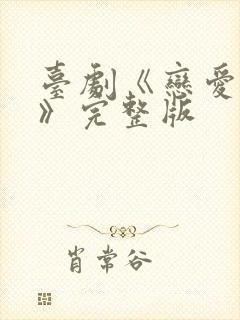 臺劇《戀愛
》完整版
肖常谷